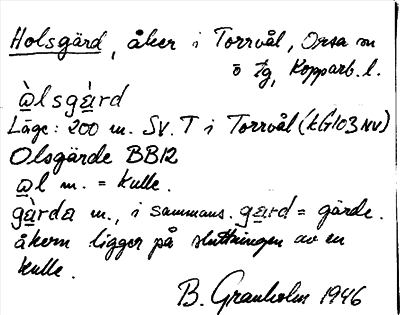 Holsgärd, åker i Torrvål, Orsa sn
o tg, Kopparb. l.
àlsgàrd
Läge: 200 m. SV. T i Torrvål (kG103NV)
Olsgärde BB12
al m. = kulle.
gàrda m., i sammans. gard = gärde.
åkern ligger på sluttningen av en
kulle.
B. Granholm 1946